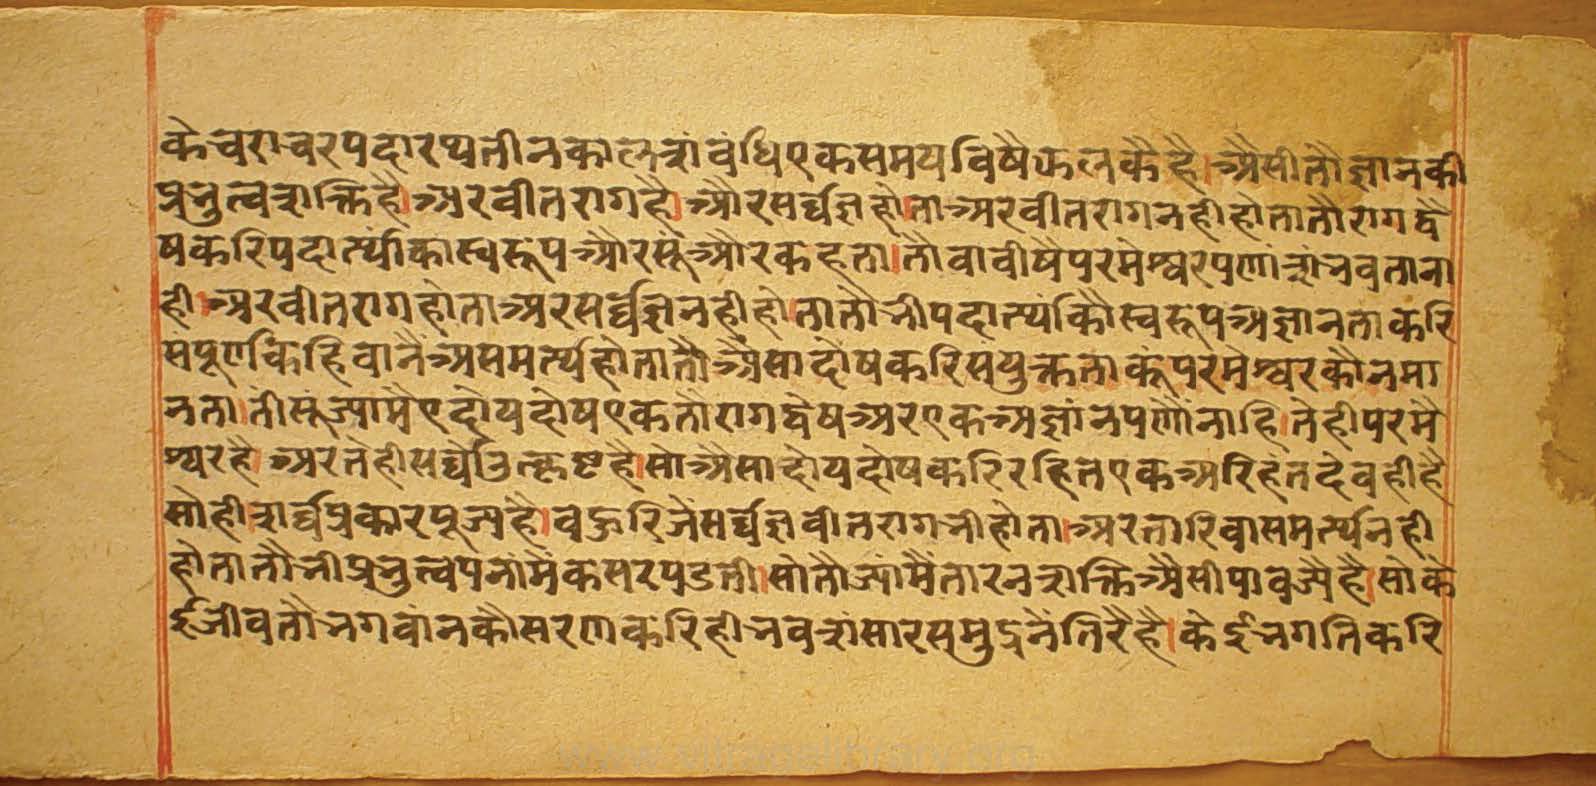 के चराचर पदारथ तीन काल संबंधि एक समय विषै झलकै है। अैसी तौ ज्ञान की
प्रभुत्व शक्ति है। अर वीतराग है। और सर्व्वज्ञ हो।ता अर वीतराग नही होता तौ राग द्वे
ष करि पदार्त्थां का स्वरूप और सूं और कहता। तौ वा वीषै परमेस्वरपणां संभवता ना
ही। अर वीतराग होता अर सर्व्वज्ञ नही हो।ता तौ भी पदार्त्थ कौ स्वरूप अज्ञानता करि
संपूर्ण कहिवानै असमर्त्थ होता तौ अैसा दोष करि संयुक्त ता कूं परमेस्वर कौन मा
नता। तीसूं ज्यामै ए दोय दोष एक तौ राग द्वेष अर एक अज्ञांनपणौं नाहि। तेही परमे
स्वर है। अर तेही सर्व्वोउत्कृष्ट है। सो अैसा दोय दोष करि रहित एक अरिहंत देव ही है
सो ही। सर्व्व प्रकार पूज्य है। बहुरि जे सर्व्वज्ञ वीतराग भी होता। अर तारिवा समर्त्थ नही
होता तौ भी प्रभुत्वपनांमै कसर पडती। सो तौ ज्यांमै तारन शक्ति अैसी पावज्ये है। सो के
ई जीव तौ भगवांन कौ सरण करि ही भव संसार समुद्रनै तिरै है। केई भगति करि
www.vitragelibrary.org